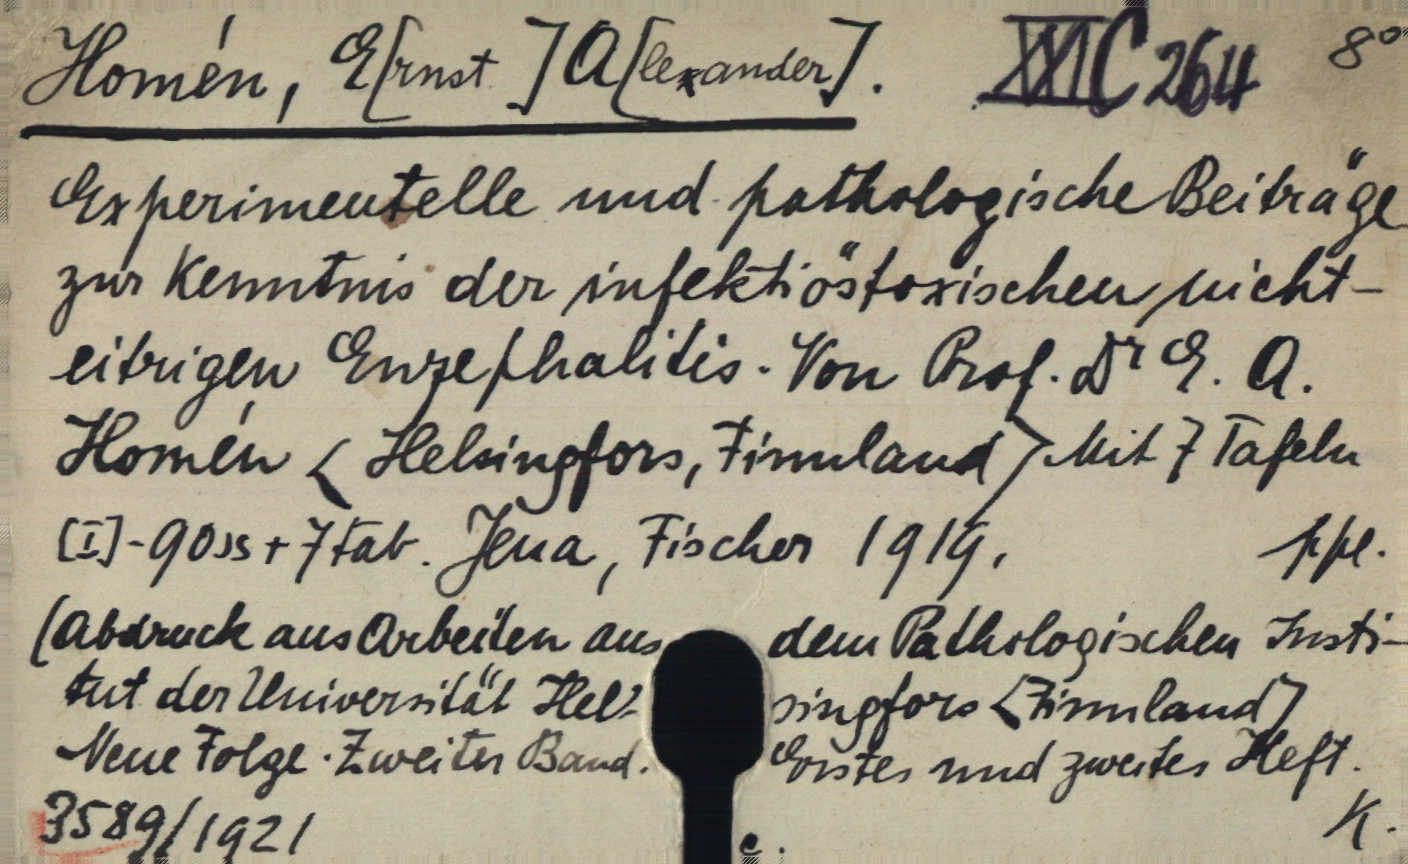 Homén, E[rnst] A[lexander]. XXI C 264 8°
Experimentelle und pathologische Beiträge
zur Kenntnis der infektiöstoxischen nicht-
eitrigen Enzephalitis. Von Prof. Dr E. A.
Homén <Helsingfors, Finnland> Mit 7 Tafeln
[I]-90 ss + 7 tab. Jena, Fischer 1919. ppl.
(Abdruck aus Arbeiten aus dem Pathologischen Insti-
tut der Universität Hel- singfors <Finnland>
Neue Folge. Zweiter Band. Erstes und zweites Heft.
3589/1921 c. K.